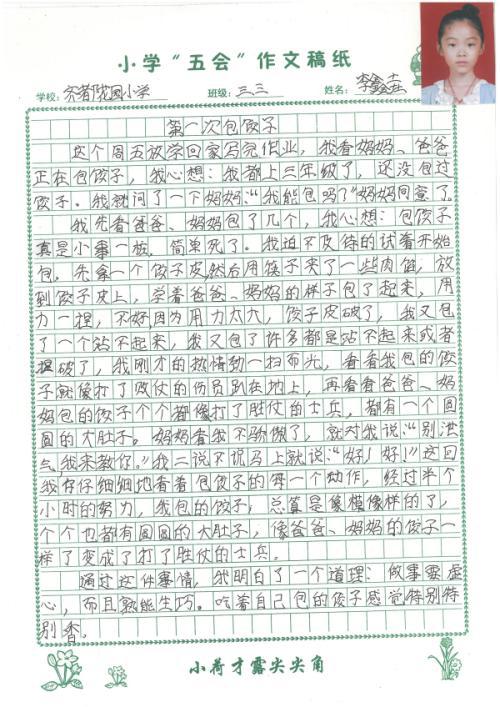 小学“五会”作文稿纸
学校: 小学 班级: 三.三 姓名: 李鑫
第一次包饺子
这个周五放学回家写完作业，我看妈妈、爸爸
正在包饺子，我心想：我都上三年级了，还没包过
饺子。我就问了一下妈妈：“我能包吗？”妈妈同意了。
我先看爸爸、妈妈包了几个，我心想：包饺子
真是小事一桩，简单死了。我迫不及待的试着开始
包，先拿一个饺子皮，然后用筷子夹了一些肉馅，放
到饺子皮上，学着爸爸、妈妈的样子包了起来，用
力一捏，不好，因为用力太大，饺子皮破了，我又包
了一个站不起来，我又包了许多都是站不起来或者
捏破了，我刚才的热情劲一扫而光，看看我包的饺
子就像打了败仗的伤员趴在地上，再看看爸爸、妈
妈包的饺子个个都像打了胜仗的士兵，都有一个圆
圆的大肚子。妈妈看我不骄傲了，就对我说：“别泄
气，我来教你。”我二话不说马上就说：“好！好！”这回
我仔仔细细地看着包饺子的每一个动作，经过半个
小时的努力，我包的饺子，总算是像模像样的了，
个个也都有圆圆的大肚子，像爸爸、妈妈的饺子一
样了变成了打了胜仗的士兵。
通过这件事情，我明白了一个道理：做事要虚
心，而且熟能生巧。吃着自己包的饺子感觉特别特
别香。
小荷才露尖尖角